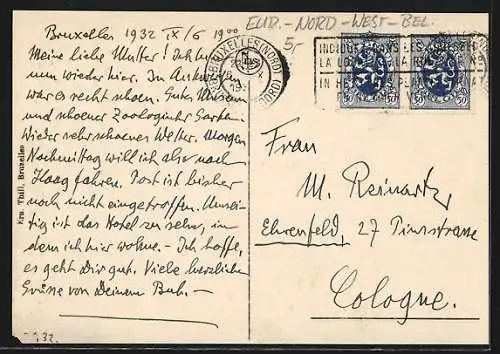 Bruxelles 1932 IX/6 19⁰⁰
Meine liebe Mutter! Ich bin
nun wieder hier. In Antwerpen
war es recht schoen. Gutes Museum
und schoener Zoologischer Garten.
Wieder sehr schoenes Wetter. Morgen
Nachmittag will ich also nach
Haag fahren. Post ist bisher
noch nicht eingetroffen.
tig ist das Hotel zu sehn, in
dem ich hier wohne. - Ich hoffe,
es geht Dir gut. Viele herzliche
Grüsse von Deinem Bub.-
Ern. Thill, Bruxelles
EUR.-NORD-WEST-BEL.
5,-
BRUXELLES (NORD)
50 50
Frau
M. Reinartz
Ehrenfeld, 27 Piusstrasse
Cologne.